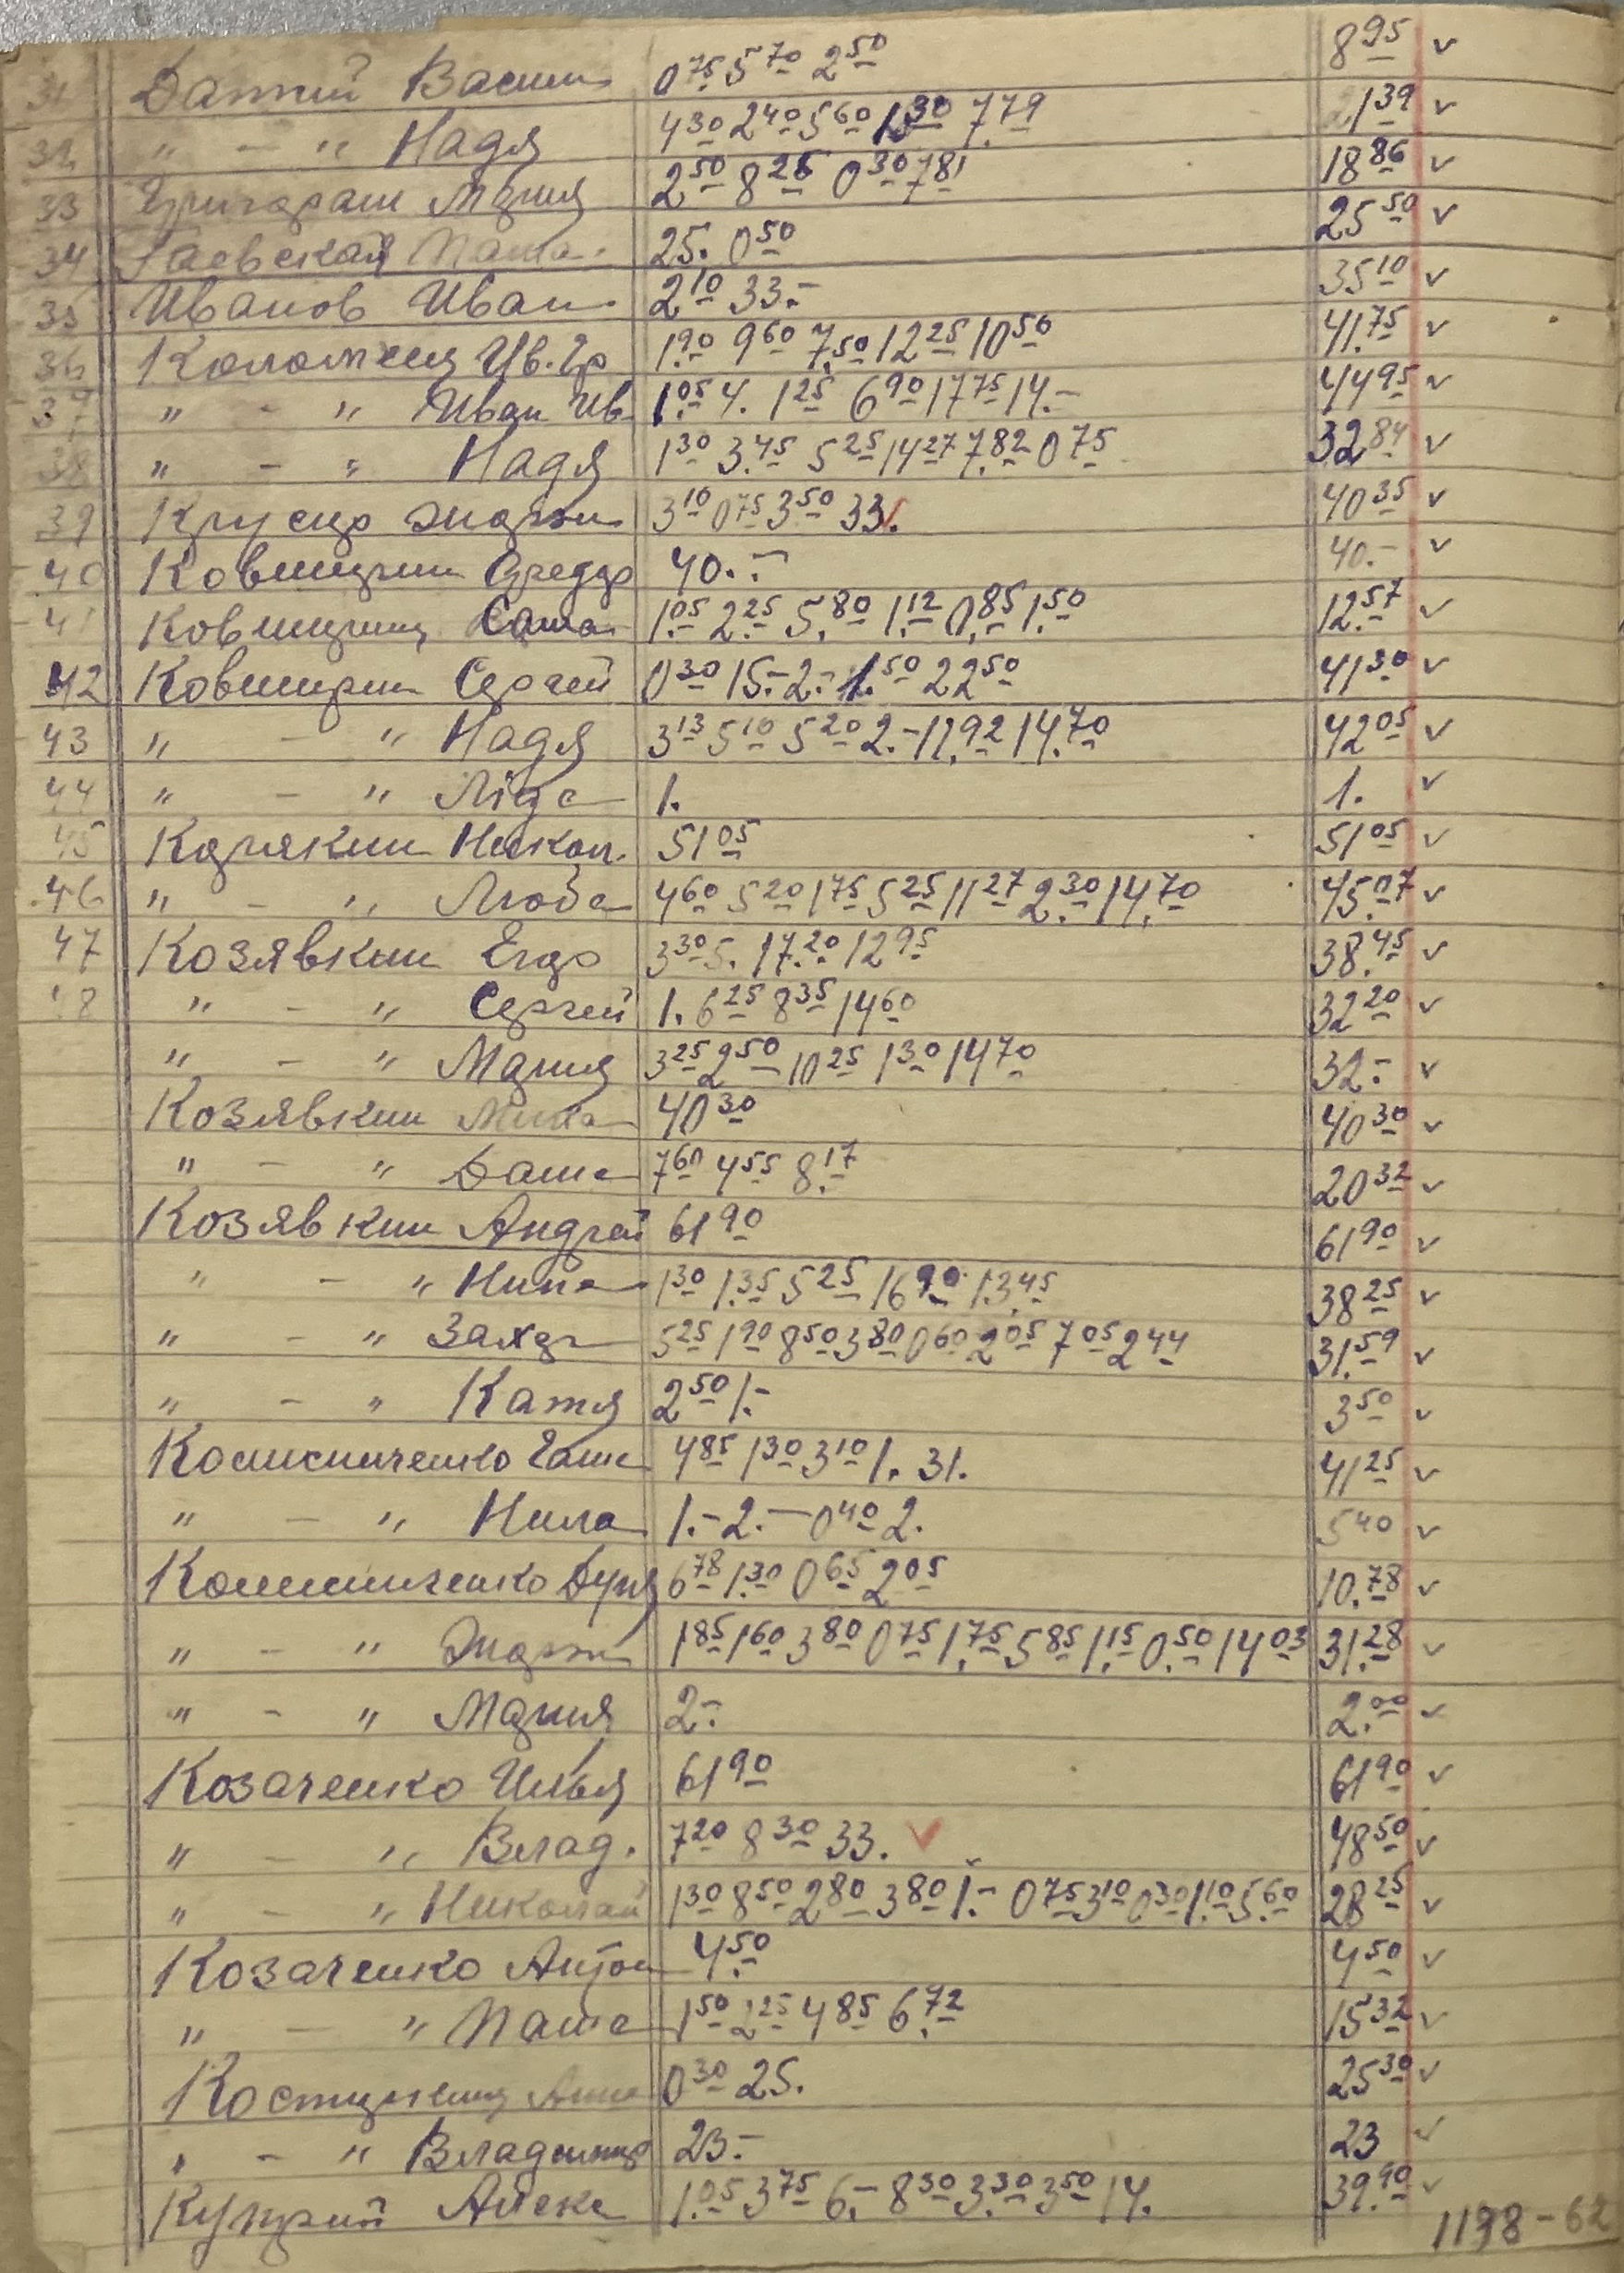 31 Датий Васил 0 75 5 70 2 50 8 95 ✓
32 " — " Надя 4 30 2 40 5 60 1 30 7.79 21 39 ✓
33 Григораш Мария 2 50 8 25 0 30 7 81 18 86 ✓
34 Гаевская Паша. 25. 0 50 25 50 ✓
35 Иванов Иван. 2 10 33.- 35 10 ✓
36 Коломеец Ив. Гр 1.90 9 60 7.50 12 25 10 50 41.75 ✓
37 " - " Иван Ив. 1.05 4. 1 25 6 90 17 75 14.- 44 95 ✓
38 " - " Надя 1 30 3.45 5 25 14 27 7.82 0 75 32 84 ✓
39 3 10 0 75 3 50 33. 40 35 ✓
40 Ковширин 40.- 40.- ✓
41 Ковширин Саша 1.05 2.25 5.80 1.12 0.85 1.50 12.57 ✓
42 Ковширин Сергей 0 30 15.- 2.- 1.50 22 50 41 30 ✓
43 " - " Надя 3 13 5 10 5 20 2.- 11.92 14.70 42 05 ✓
44 " - " Ліда 1. 1. ✓
45 Карякин Никол. 51 05 51 05 ✓
46 " - " Люба 4 60 5 20 1 75 5 25 11 27 2.30 14.70 45.07 ✓
47 Козявкин Егор 3 30 5. 17.20 12 95 38.45 ✓
48 " - " Сергей 1. 6 25 8 35 14 60 32 20 ✓
" - " Мария 3 25 2 50 10 25 1 30 14 70 32.- ✓
Козявкин Миха 40 30 40 30 ✓
" - " Даша 7 60 4 55 8.17 20 32 ✓
Козявкин Андрей 61 90 61 90 ✓
" - " Нина 1 30 1.35 5 25 16 90 13.45 38 25 ✓
" - " Захар 5 25 1 90 8 50 3 80 0 60 2 05 7 05 2 44 31.59 ✓
" - " Катя 2 50 1.- 3 50 ✓
4 85 1 30 3 10 1. 31. 41 25 ✓
" - " Нила 1.- 2.- 0 40 2. 5 40 ✓
Дуня 6 78 1.30 0 65 2 05 10.78 ✓
" - " 1 85 1 60 3 80 0 75 1.75 5 85 1.15 0.50 14 03 31.28 ✓
" - " Мария 2.- 2.00 ✓
Козаченко Илья 61 90 61 90 ✓
" - " Влад. 7 20 8 30 33. ✓ 48 50 ✓
" - " Николай 1 30 8 50 2 80 3 80 1.- 0 75 3 10 0 30 1.10 5.60 28 25 ✓
Козаченко Антон 4.50 4 50 ✓
" - " Паша 1 50 2 25 4 85 6.72 15 32 ✓
0 30 25. 25 30 ✓
" - " Владимир 23.- 23 ✓
Куприй Алекс 1.05 3 75 6.- 8 30 3.30 3 50 14. 39.90 ✓
1198-62